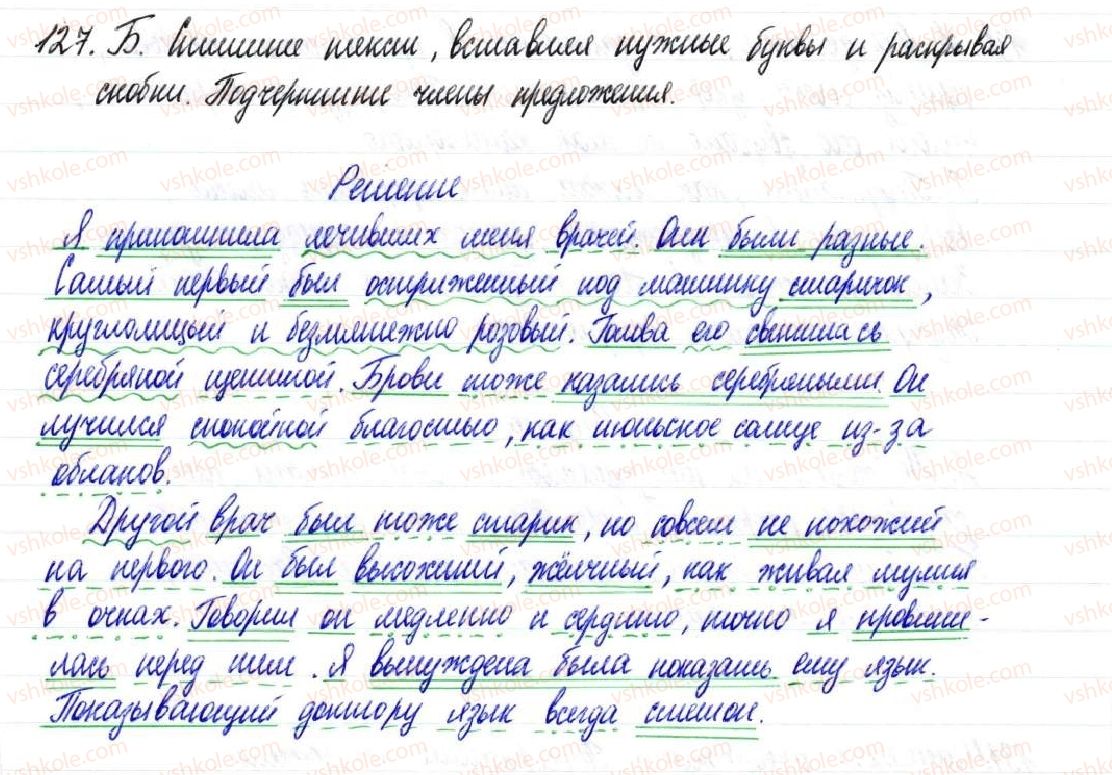 127. Б. Спишите текст, вставляя нужные буквы и раскрывая
скобки. Подчеркните члены предложения.
Решение
Я припомнила лечивших меня врачей. Они были разные.
Самый первый был остриженный под машинку старичок,
круглолицый и безмятежно розовый. Голова его светилась
серебряной щетиной. Брови тоже казались серебряными. Он
лучился спокойной благостью, как июньское солнце из-за
облаков.
Другой врач был тоже старик, но совсем не похожий
на первого. Он был высохший, жёлчный, как живая мумия
в очках. Говорил он медленно и сердито, точно я провини-
лась перед ним. Я вынуждена была показать ему язык.
Показывающий доктору язык всегда смешон.
vshkole.com